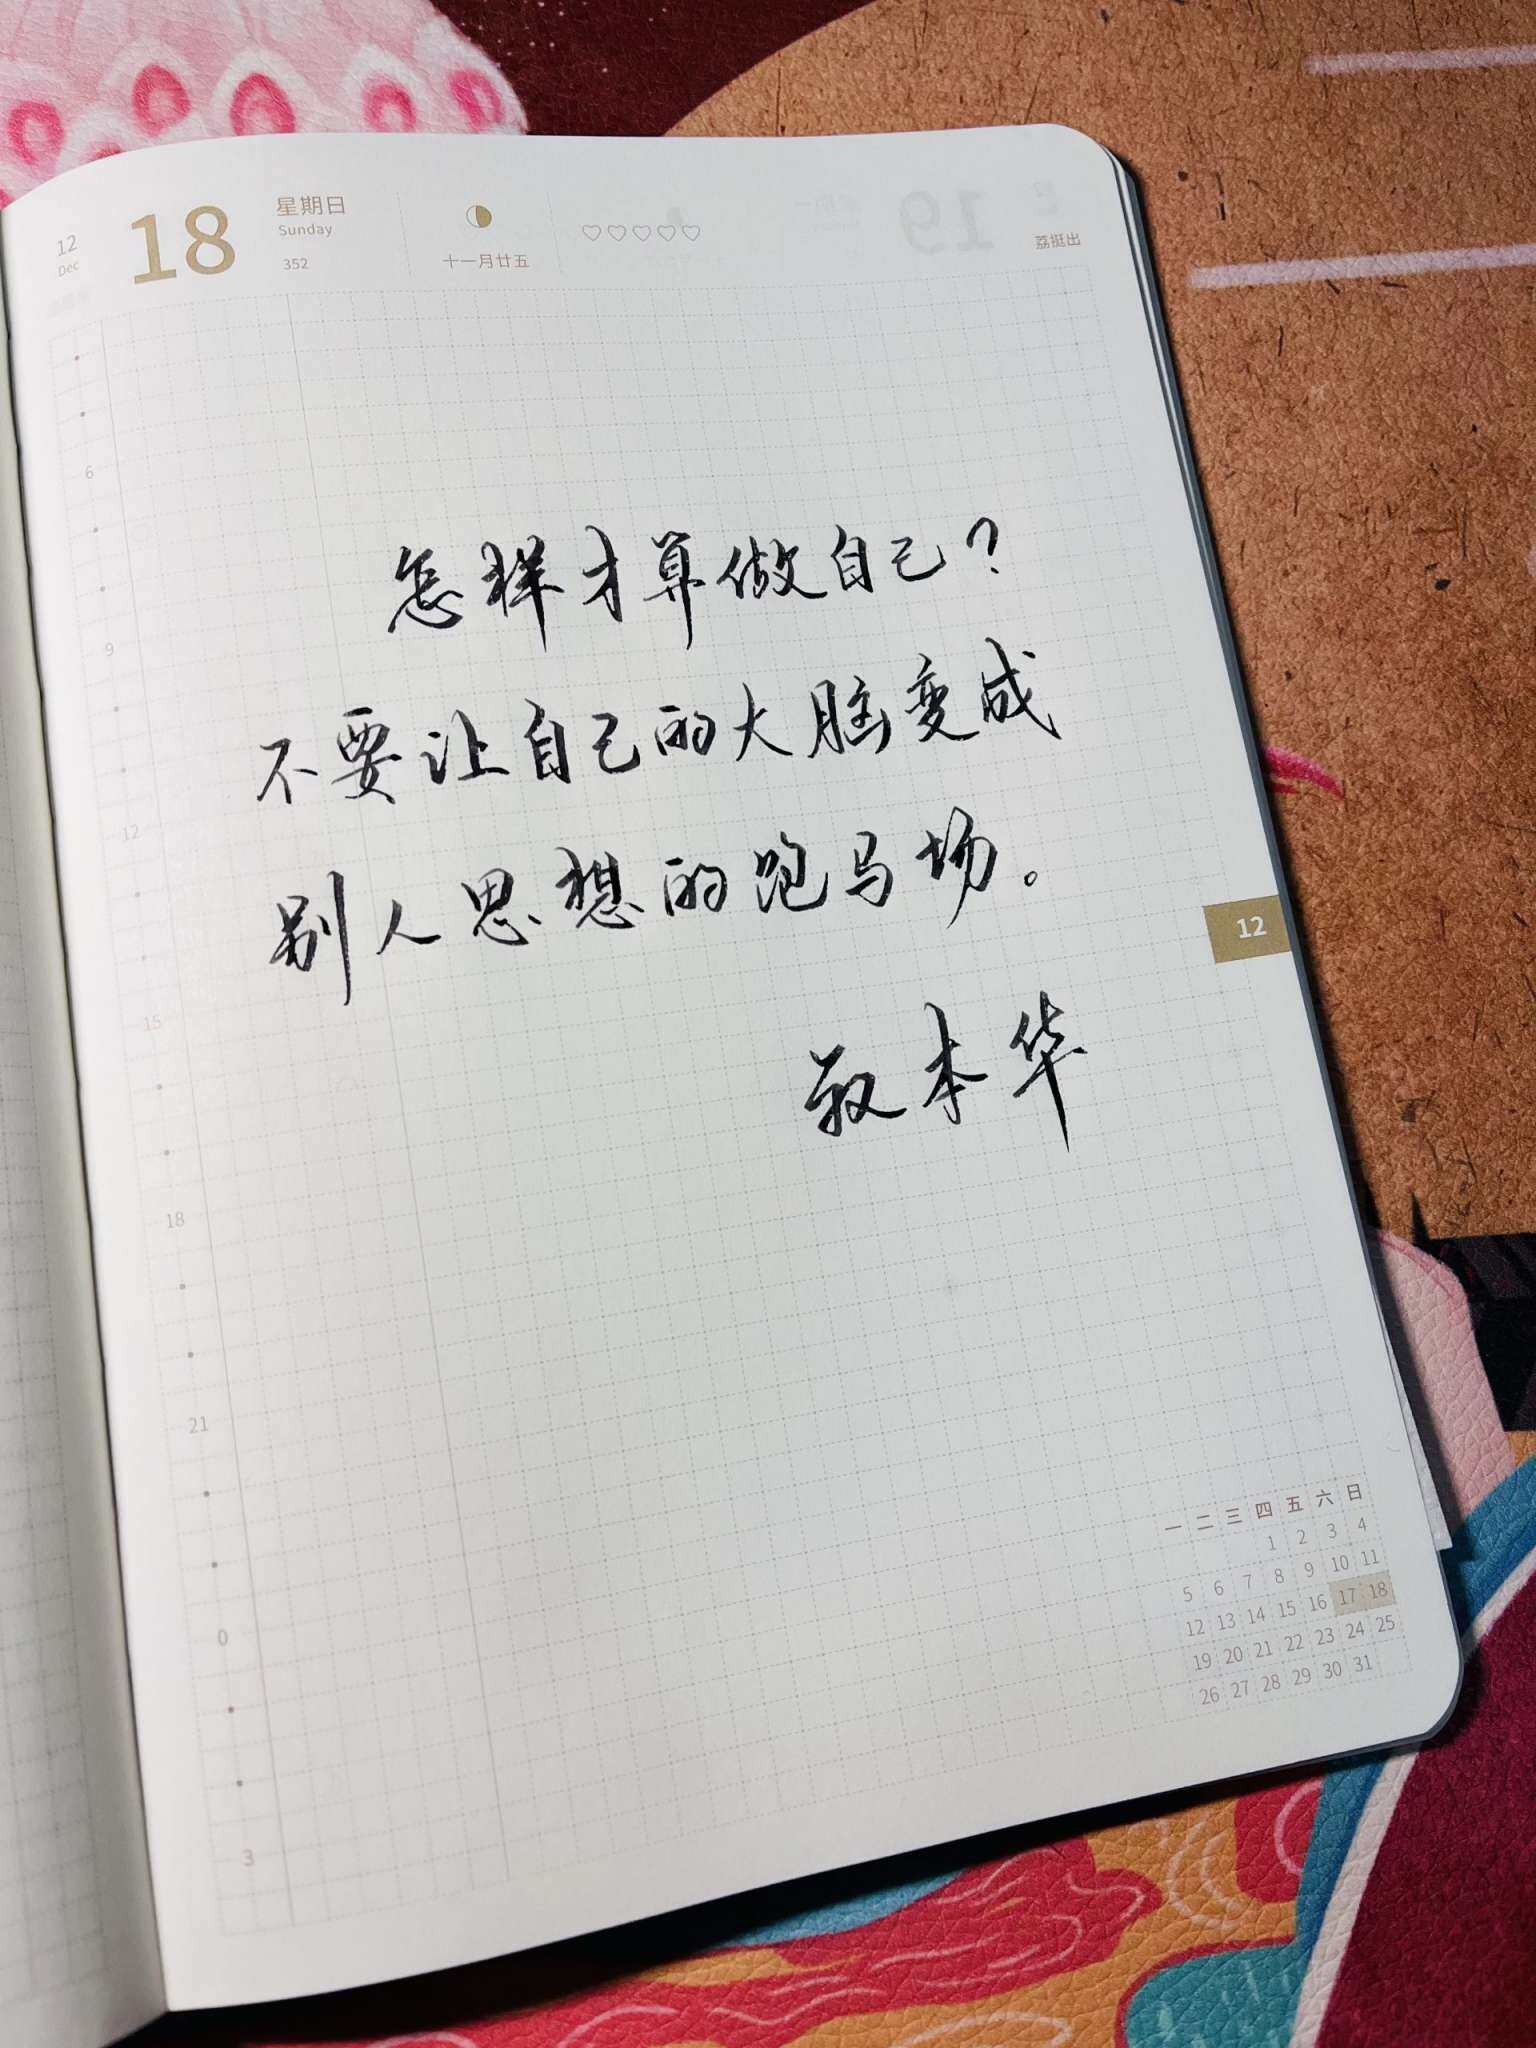 12
Dec
18
星期日
Sunday
352
十一月廿五
荔挺出
6
9
12
15
18
21
0
3
怎样才算做自己？
不要让自己的大脑变成
别人思想的跑马场。
叔本华
12
一 二 三 四 五 六 日
1 2 3 4
5 6 7 8 9 10 11
12 13 14 15 16 17 18
19 20 21 22 23 24 25
26 27 28 29 30 31